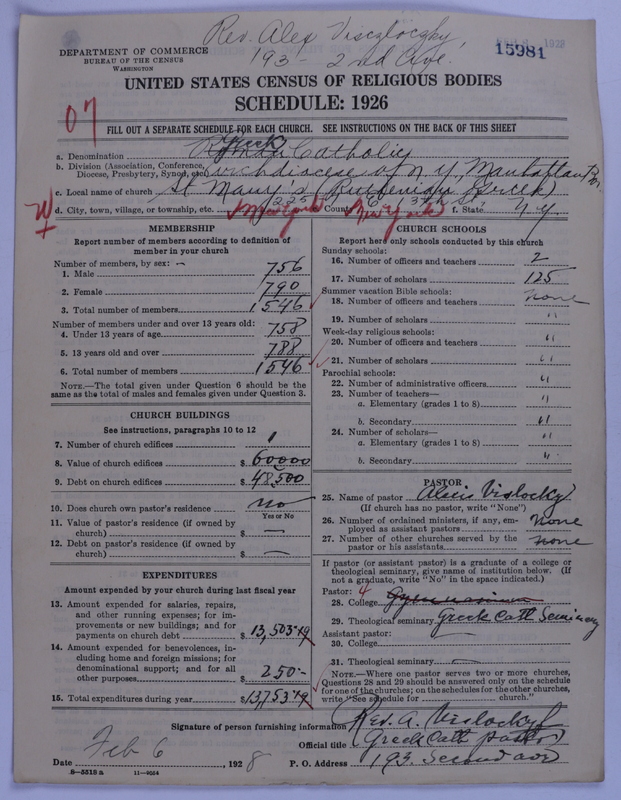 Rev. Alex
193 - 2nd Ave.
15981
DEPARTMENT OF COMMERCE
BUREAU OF THE CENSUS
WASHINGTON
UNITED STATES CENSUS OF RELIGIOUS BODIES
SCHEDULE: 1926
07
FILL OUT A SEPARATE SCHEDULE FOR EACH CHURCH. SEE INSTRUCTIONS ON THE BACK OF THIS SHEET
Greek
a. Denomination Roman Catholic
b. Division (Association, Conference, Diocese, Presbytery, Synod, etc.) Archdiocese of N.Y. Manhattan Bor.
c. Local name of church St Mary's (Ruthenian Greek)
d. City, town, village, or township, etc. New York County New York f. State N.Y.
MEMBERSHIP
Report number of members according to definition of member in your church
Number of members, by sex: —
1. Male 756
2. Female 790
3. Total number of members 1546
Number of members under and over 13 years old:
4. Under 13 years of age 758
5. 13 years old and over 788
6. Total number of members 1546
NOTE.—The total given under Question 6 should be the same as the total of males and females given under Question 3.
CHURCH BUILDINGS
See instructions, paragraphs 10 to 12
7. Number of church edifices 1
8. Value of church edifices $ 60000
9. Debt on church edifices $ 48,500
10. Does church own pastor's residence no
Yes or No
11. Value of pastor's residence (if owned by church) $ —
12. Debt on pastor's residence (if owned by church) $ —
EXPENDITURES
Amount expended by your church during last fiscal year
13. Amount expended for salaries, repairs, and other running expenses; for improvements or new buildings; and for payments on church debt $ 13,503.49
14. Amount expended for benevolences, including home and foreign missions; for denominational support; and for all other purposes $ 250.-
15. Total expenditures during year $ 13,753.49
CHURCH SCHOOLS
Report here only schools conducted by this church
Sunday schools:
16. Number of officers and teachers 2
17. Number of scholars 125
Summer vacation Bible schools:
18. Number of officers and teachers none
19. Number of scholars "
Week-day religious schools:
20. Number of officers and teachers "
21. Number of scholars "
Parochial schools:
22. Number of administrative officers "
23. Number of teachers—
a. Elementary (grades 1 to 8) "
b. Secondary "
24. Number of scholars—
a. Elementary (grades 1 to 8) "
b. Secondary "
PASTOR
25. Name of pastor Alexis Vislocky
(If church has no pastor, write "None")
26. Number of ordained ministers, if any, employed as assistant pastors none
27. Number of other churches served by the pastor or his assistants none
If pastor (or assistant pastor) is a graduate of a college or theological seminary, give name of institution below. (If not a graduate, write "No" in the space indicated.)
Pastor: 4
28. College
29. Theological seminary Greek Cath Seminary
Assistant pastor:
30. College
31. Theological seminary —
NOTE.—Where one pastor serves two or more churches, Questions 28 and 29 should be answered only on the schedule for one of the churches; on the schedules for the other churches, write "See schedule for church."
Signature of person furnishing information Rev. A. Vislocky
Official title Greek Cath pastor
Date Feb 6, 1928 P. O. Address 193 Second ave
8-5518 a 11-9054